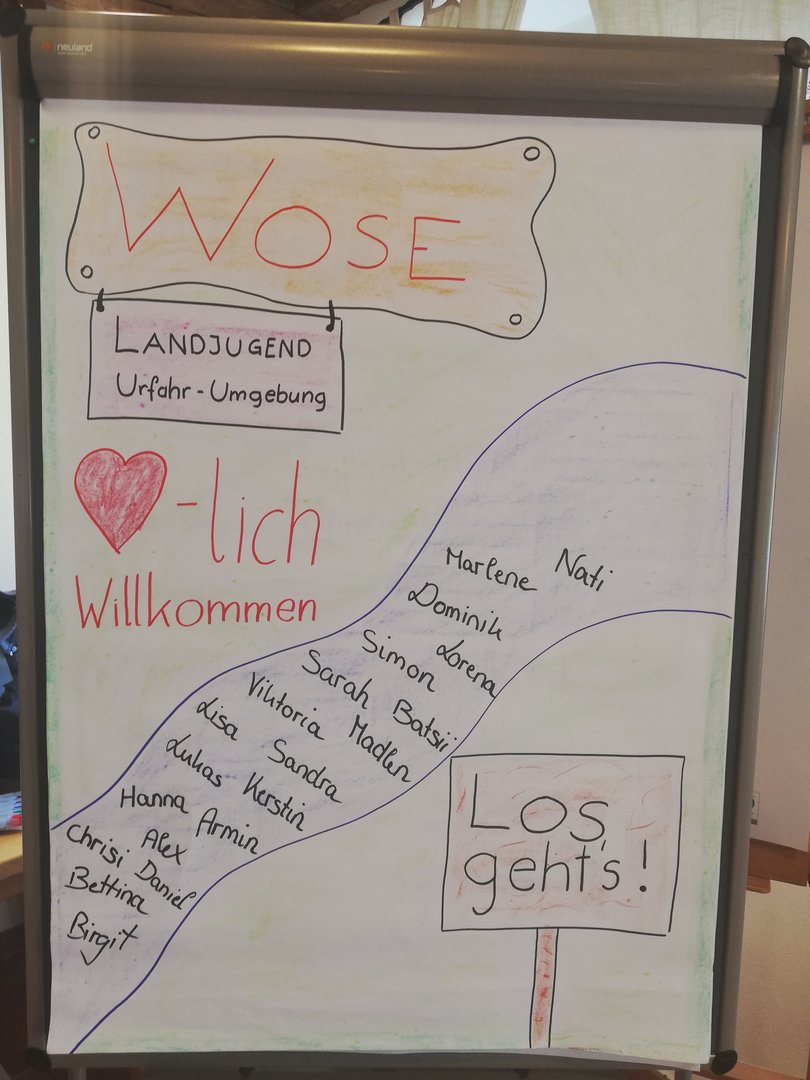 neuland
WOSE
LANDJUGEND
Urfahr-Umgebung
-lich
Willkommen
Marlene Nati
Dominik
Lorena
Simon
Sarah Batsii
Viktoria Madlen
Lisa Sandra
Lukas Kerstin
Hanna Armin
Chrisi Alex
Daniel
Bettina
Birgit
Los
geht's!